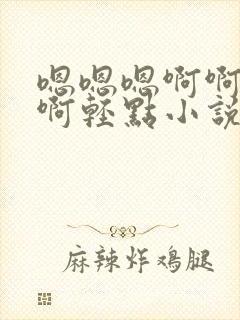 嗯嗯嗯啊啊
啊轻點小説
麻辣炸鸡腿